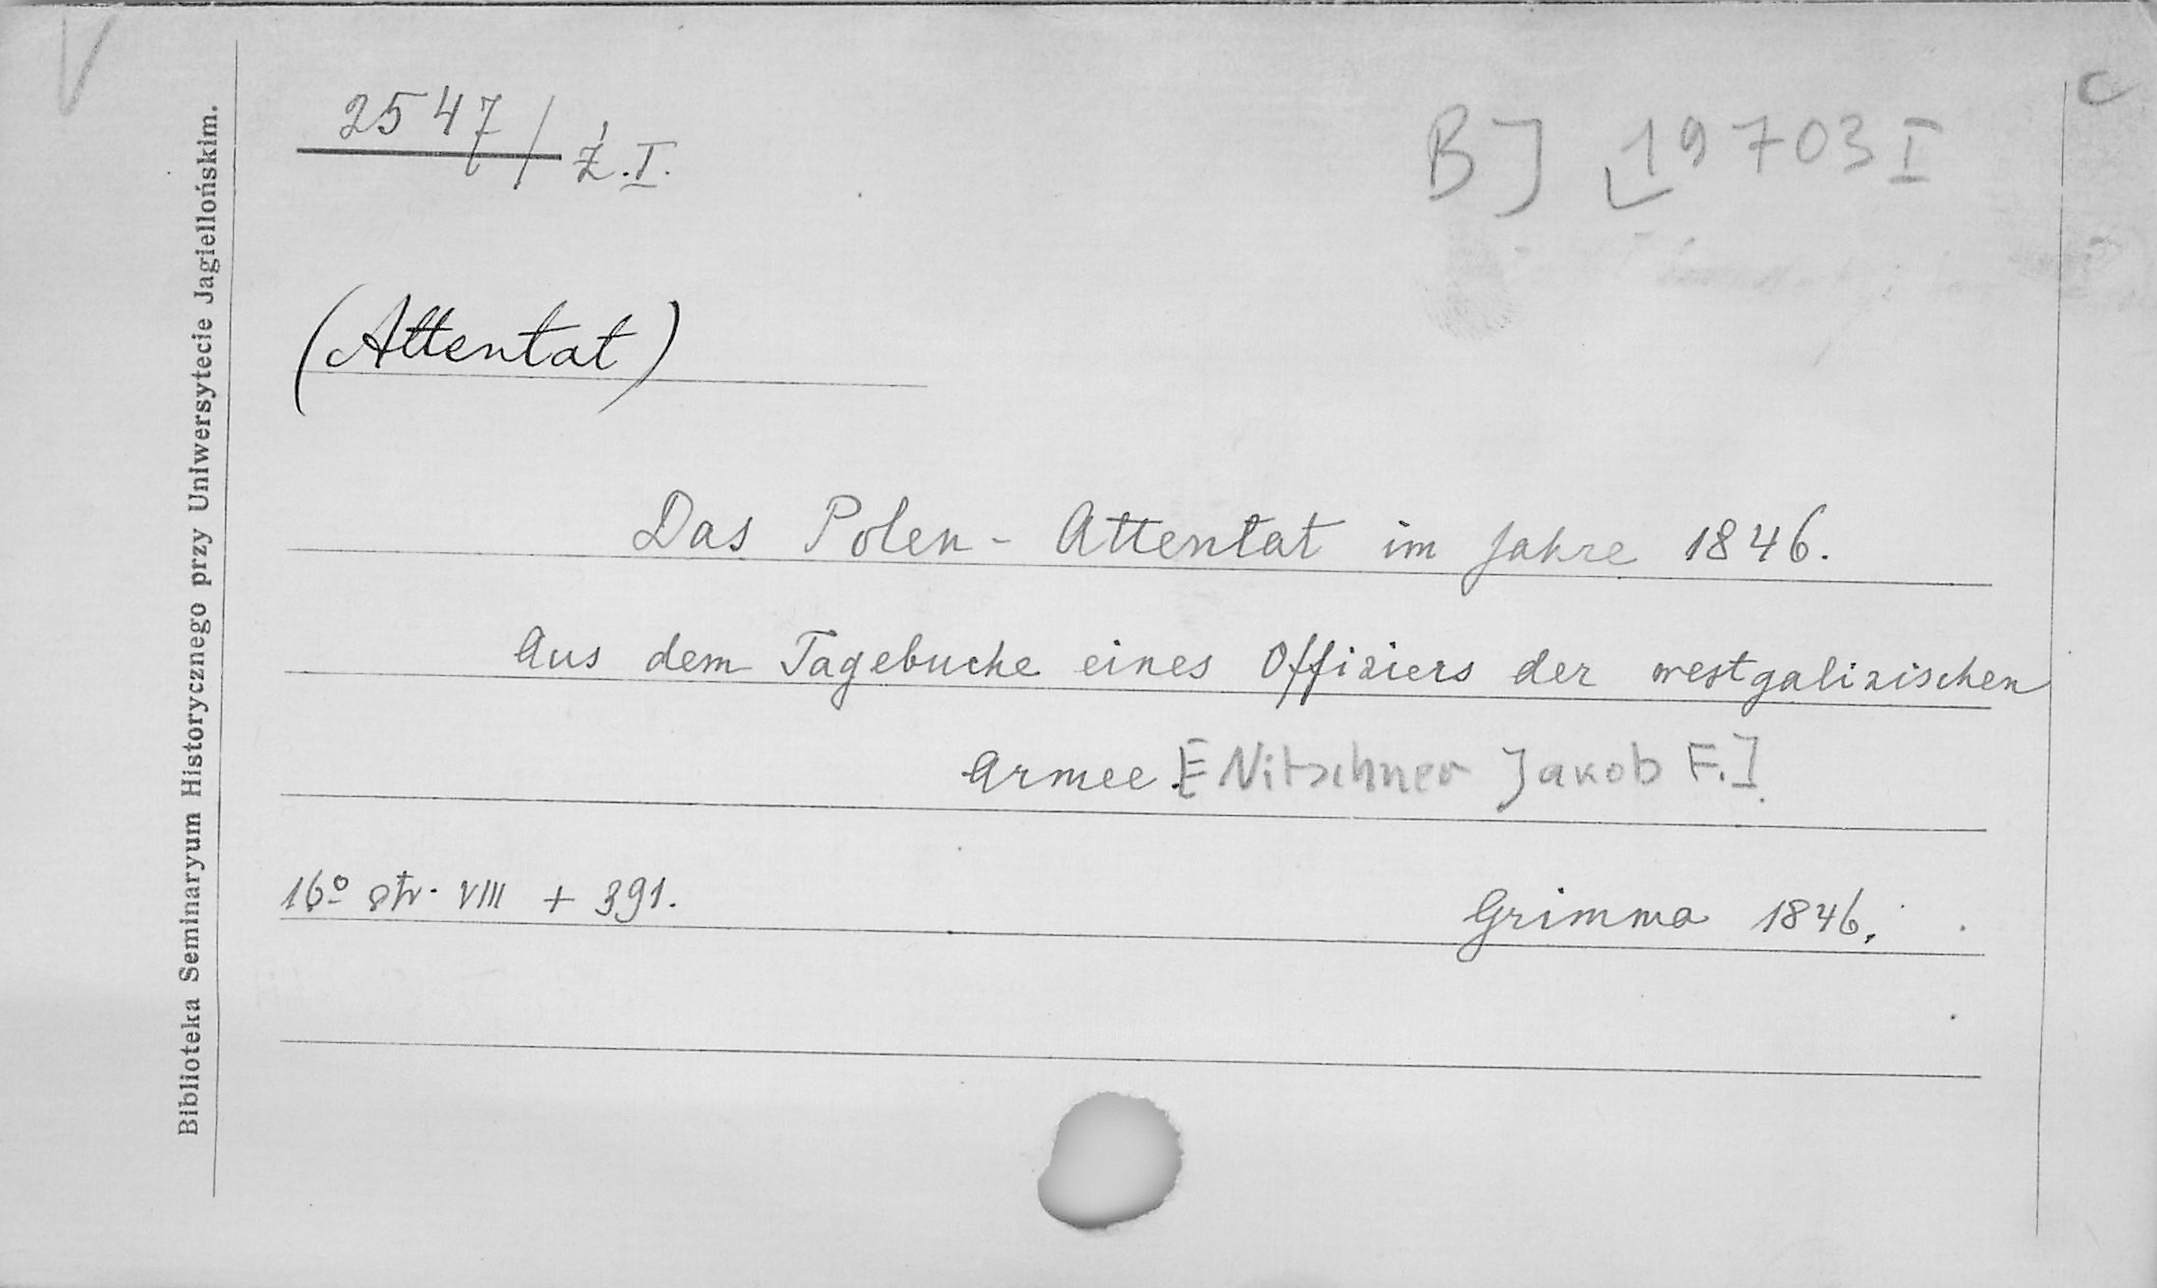 V
C
2547/Ż.I.
BJ 19703 I
(Attentat)
Das Polen-Attentat im Jahre 1846.
Aus dem Tagebuche eines Offiziers der westgalizischen
Armee. [Nitschner Jakob F.]
16º str. VIII + 391.
Grimma 1846.
Biblioteka Seminaryum Historycznego przy Uniwersytecie Jagiellońskim.